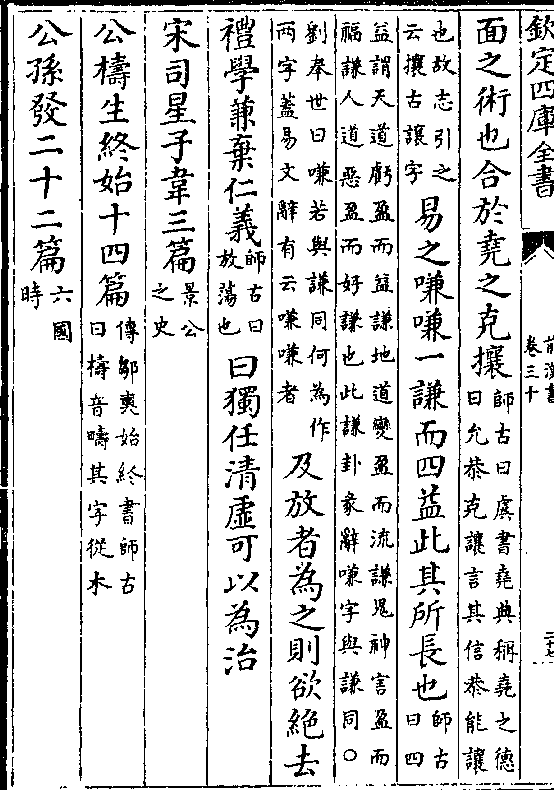 欽定四庫全書
卷三十
面之術也合於堯之克攘師古曰虞書堯典稱堯之德曰允恭克讓言其信恭能讓
也故志引之云攘古讓字易之嗛嗛一謙而四益此其所長也師古曰四
益謂天道虧盈而益謙地道變盈而流謙鬼神害盈而福謙人道惡盈而好謙也此謙卦彖辭嗛字與謙同○
劉奉世曰嗛若與謙同何為作兩字蓋易文辭有云嗛嗛者及放者為之則欲絶去
禮學兼棄仁義師古曰放蕩也曰獨任清虛可以為治
宋司星子韋三篇景公之史
公檮生終始十四篇傳鄒奭始終書師古曰檮音疇其字從木
公孫發二十二篇六國時